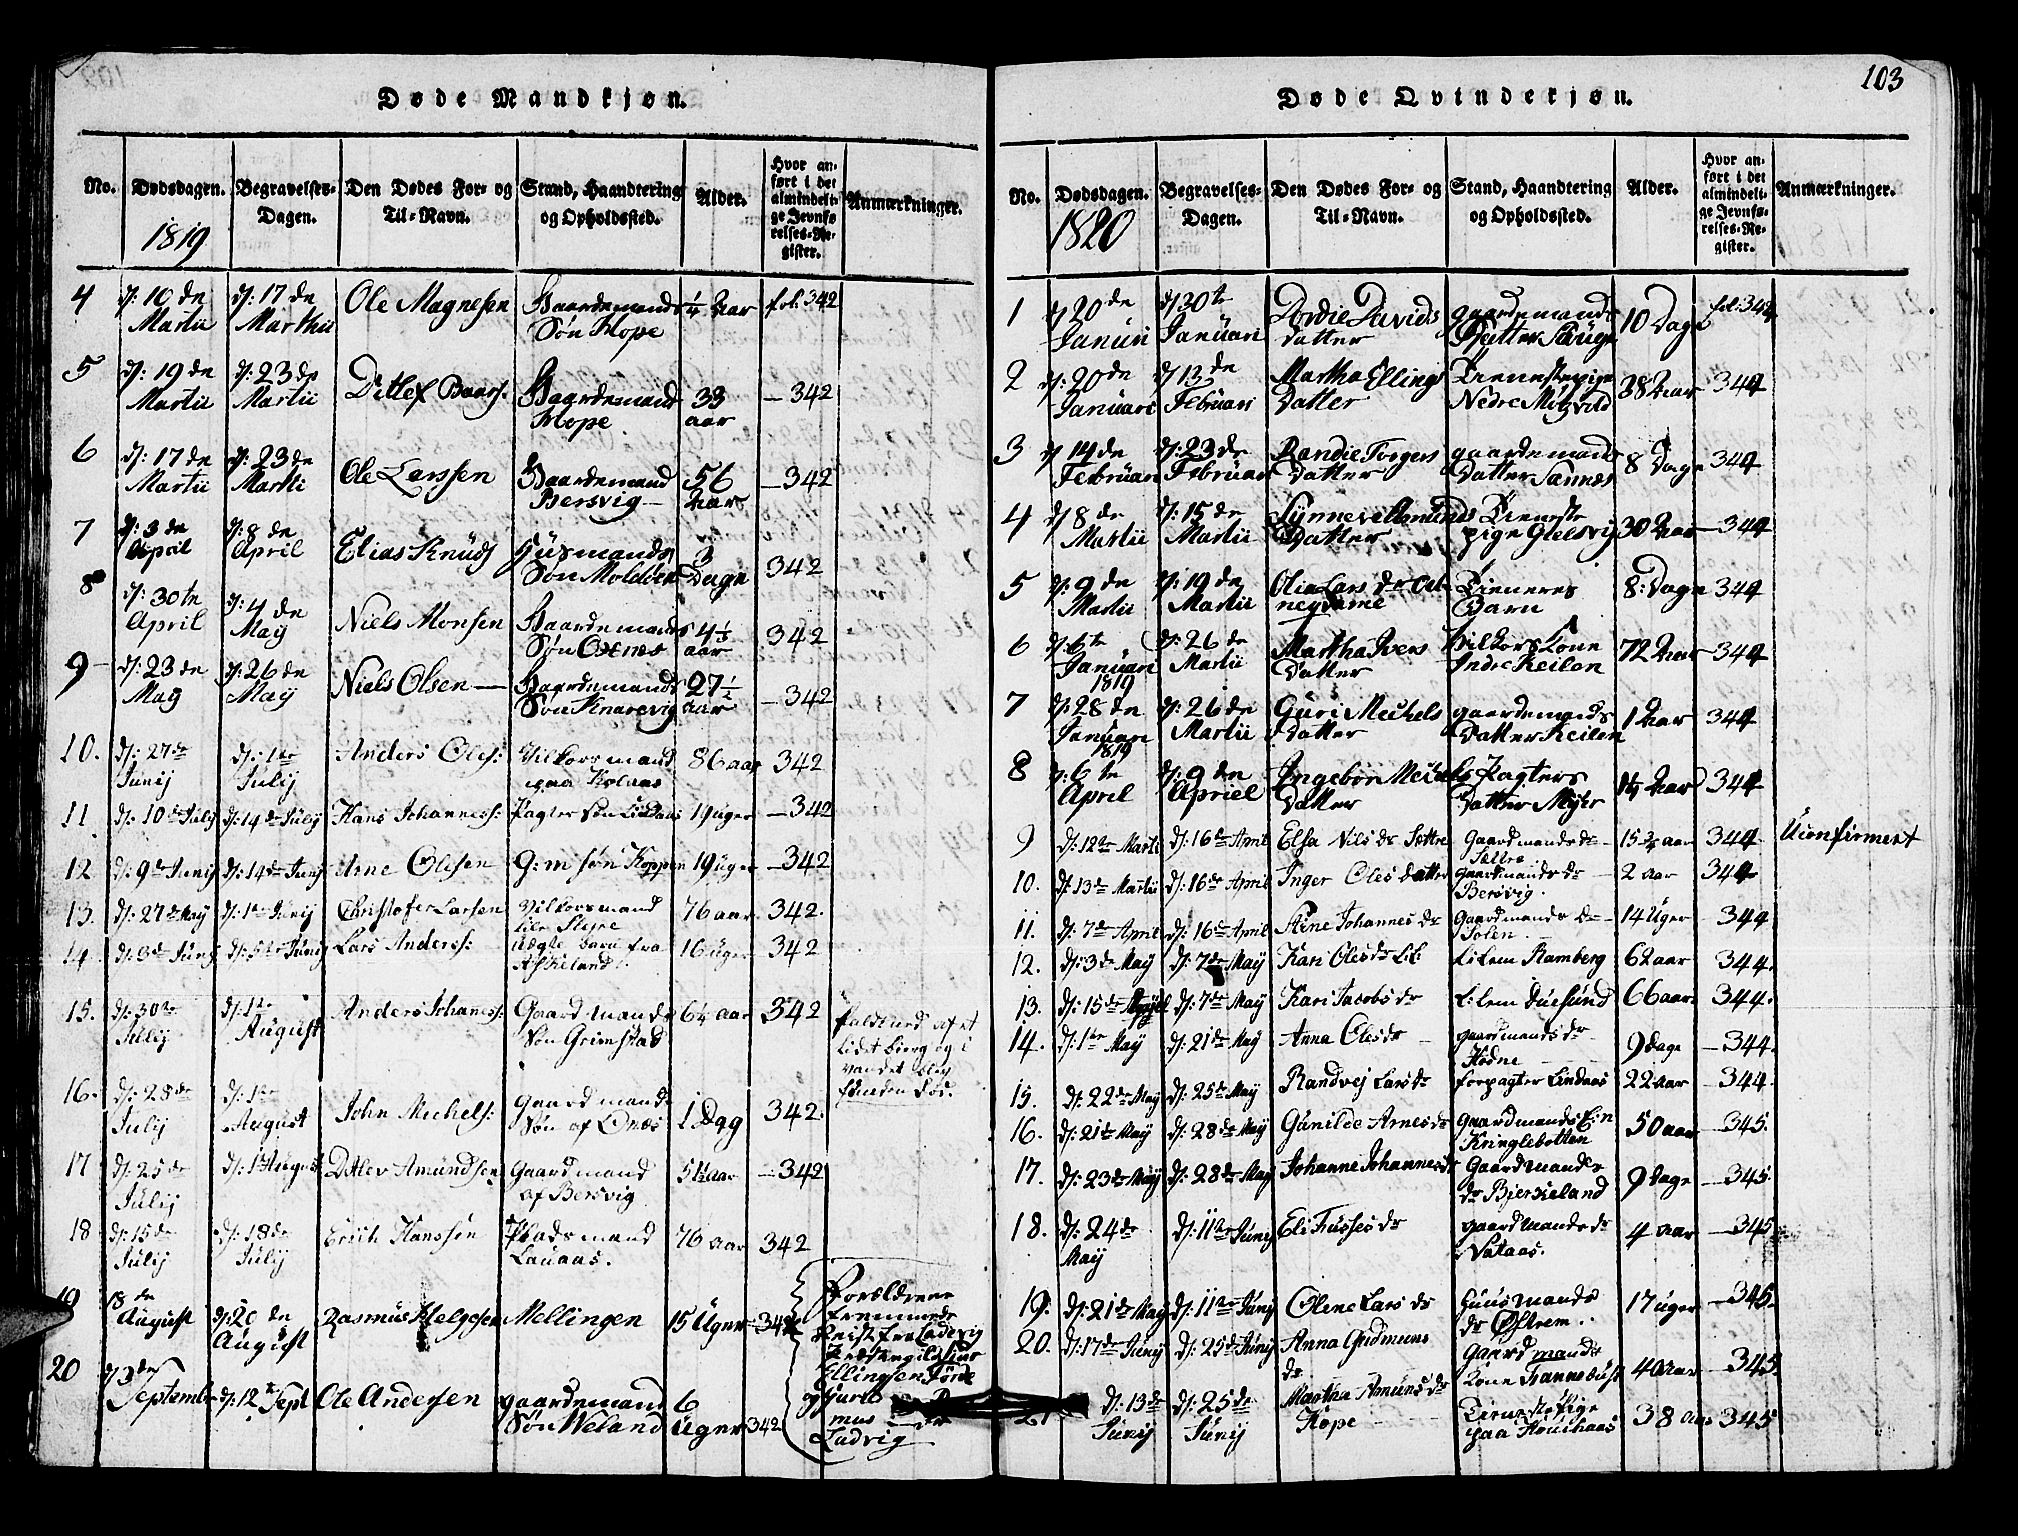 Døde Mandkjøn.
No. Dødsdagen. Begravelses-Dagen. Den Dødes For- og Til-Navn. Stand, Haandtering og Opholdssted. Alder. Hvor anført i det almindelige Jevnførelses-Register. Anmærkninger.
1819
4 d: 10 de Martii d: 17 de Marthii Ole Magnesen Gaardemands Søn Hope 1/4 Aar fol. 342
5 d: 19 de Martii d: 23 de Martii Ditlef Baars: Gaardemand Hope 33 aar 342
6 d: 17 de Martii d: 23 de Martii Ole Larssen Gaardemand Bersvig 56 Aar 342
7 d: 3 de April d: 8 de April Elias Knuds Huusmands Søn Molden 3 Dage 342
8 d: 30te April d: 4 de May Niels Monsen Gaardemands Søn 4 1/3 aar 342
9 d: 23 de May d: 26 de May Niels Olsen Gaardemands Søn Knarrvig 27 1/2 aar 342
10. d: 27de Junij d: 1te Julij Anders Oles: Vilkorsmand paa Kolaas 86 aar 342
11 d: 10de Julij d: 14de Julij Hans Johanness: Pagter Søn Lindaas 19 uger 342
12 d: 9de Junij d: 14de Junij Arne Olesen G: m søn Koppen 19 uger 342
13. d: 27de May d: 1te Junij Christofer Larsen Vilkorsmand 76 aar 342.
14. d: 3de Junij d: 5te Junij Lars Anders: Uægte barn fra Askeland 16 uger 342
15. d: 30te Julij d: 1te August Anders Johaness: Gaardmands Søn Grimstad 6 1/4 aar 342 faldt ud af et lidet bierg og i vandet blev funden død.
16. d: 28de Julij d: 1te August John Michels: Gaardmands Søn af Onæs 1 Dag 342.
17 d: 25de Julij d: 1te August Ditlev Amundsen Gaardmand af Bersvig 51 1/2 aar 342
18 d: 15de Julij d: 18de Julij Erich Hanssen Pladsmand Lauaas. 76 aar 342
19 18 de August d: 20 de August Rasmus Helgesen Mellingen 15 Uger 342 Forældrene fremmede Ellingsen Førde og Ladvig
20 d 3de Septembr d: 12te Sept Ole Andersen gaardemand Søn Weland 6 Uger 342
103
Døde Qvindekjøn.
No. Dødsdagen. Begravelses-Dagen. Den Dødes For- og Til-Navn. Stand, Haandtering og Opholdssted. Alder. Hvor anført i det almindelige Jevnførelses-Register. Anmærkninger.
1820
1 d 20de Januari d 30te Januari Dordie Davids Datter gaardemands Datter Tauge 10 Dage fol: 344
2 d: 20de Januari d 13de Februari Martha Ellings Datter Tienestepige Nedre Mitzvold 38 Aar 344
3 d 14de Februari d: 23 de Februari Randie Torgers Datter gaardemands Datter Sannæs 8 Dage 344
4 d 8 de Martii d: 15 de Martii Synneve Amunds Datter Tieneste pige Gielsvig 30 Aar 344
5 d: 9 de Martii d: 19 de Martii Olia Lars dr Tieneres Barn 8: Dage 344
6 d: 6te Januari 1819 d: 26 de Martii Martha Ivers Datter Vilkors Kone Indre Keilen 72 Aar 344
7 d: 28 de Januari 1819 d: 26 de Martii Guri Michels Datter gaardemands Datter Keilen 1 Aar 344
8 d: 6te April d: 9 de Apriel Ingebor Michels Datter Pagters Datter Myhr 344
9 d: 12te Martii d: 16de April Elsa Nils dr Sættre Gaardmands dr Sættre 15 3/4 aar 344 Uconfirmert
10. d: 13de Martii d: 16de April Inger Oles datter gaardmands dr Bersvig. 2 aar 344
11. d: 7de April d: 16de April Arne Johannes dr Gaardmands dr Solen. 14 Uger 344
12. d: 3de May d: 7de May Kari Oles dr L: L: L: Lem Ramberg 62 aar 344.
13. d: 15de April d: 7de May Kari Jacobs dr L: lem Duesund 66 aar 344.
14. d: 1te May d: 21de May Anna Oles dr gaardmands dr Hodne 9 dage 344.
15. d: 22de May d: 25de May Randvej Lars dr forpagter Lindaas 22 aar 344
16. d: 21de May d: 28de May Gunilde Arnes dr Gaardmands E:in Kringlebotten 50 aar 345.
17. d: 23de May d: 28de May Johanne Johannes dr Gaardmands dr Bierkeland 9 dage 345.
18. d: 24de May d: 11te Junij Eli Tusses dr gaardmands dr Nataas. 4 aar 345
19. d: 21de May d: 11te Junij Olene Lars dr Huusmands dr Østrem 17 uger 345.
20. d: 17de Junij d: 25de Junij Anna Gudmuns dr Gaardmands Kone Fannebust 40 aar 345
21 d: 13de Junij d: 25de Junij Martha Amuns dr Hope Tienestepige paa 38 aar 345